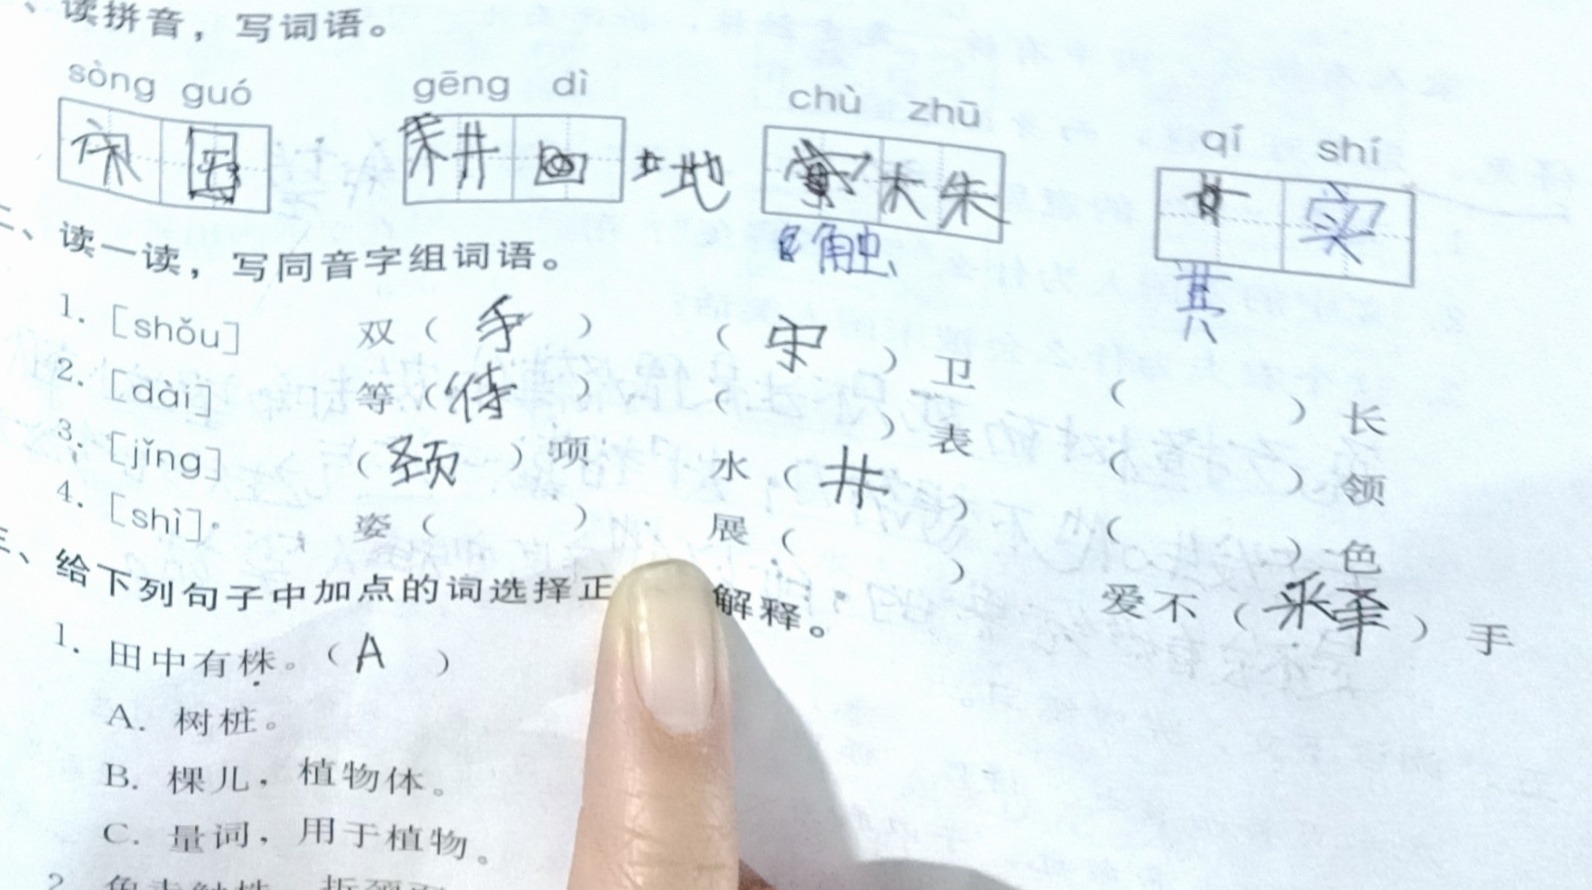 、读拼音，写词语。
sòng guó gēng dì chù zhū qí shí
宋国 耕 地 株 实
触 其
二、读一读，写同音字组词语。
1. [shǒu] 双（手） （守）卫 （ ）长
2. [dài] 等（待） （ ）表 （ ）领
3. [jǐng] （颈）项 水（井） （ ）色
4. [shì] 姿（ ） 展（ ） 爱不（采择）手
三、给下列句子中加点的词选择正 解释。
1. 田中有株。（A）
A. 树桩。
B. 棵儿，植物体。
C. 量词，用于植物。
2. 兔走触株，折颈而